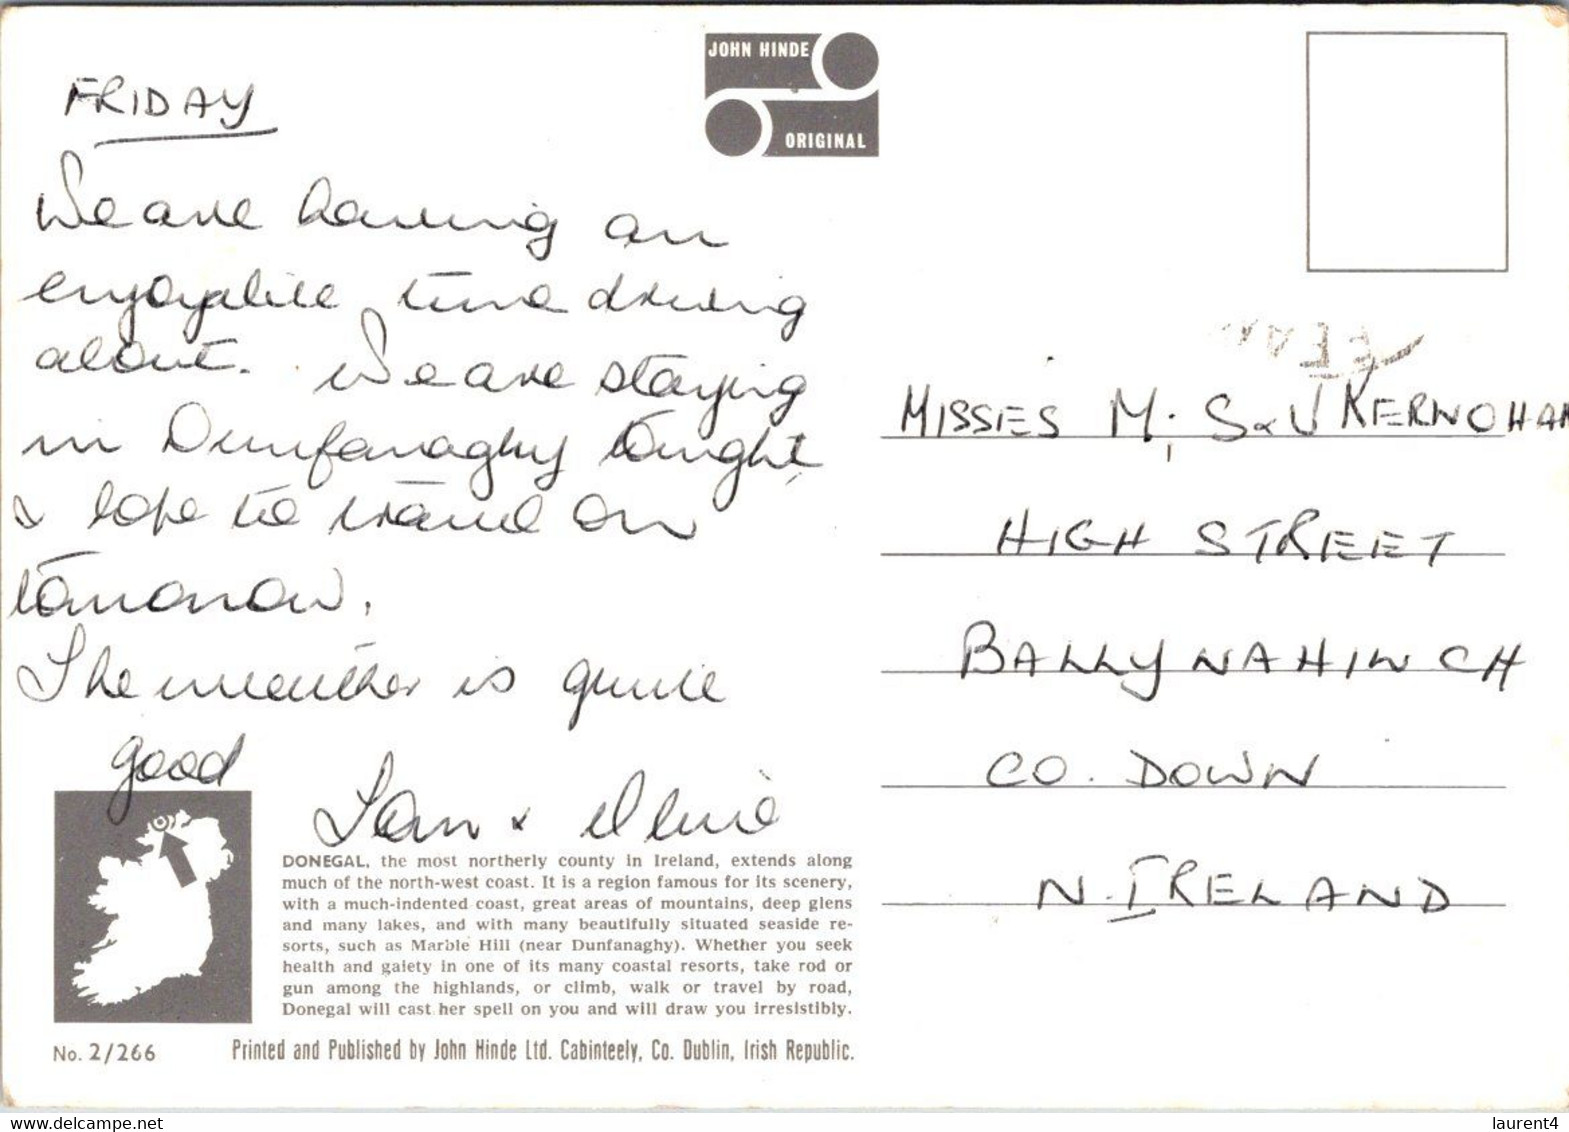 JOHN HINDE
ORIGINAL
FRIDAY
We are having an
enjoyable time driving
about. We are staying
in Dunfanaghy tonight
& hope to travel on
tomorrow.
The weather is quite
good
&
MISSES M, S & V KERNOHAN
HIGH STREET
BALLYNAHINCH
CO. DOWN
N. IRELAND
DONEGAL, the most northerly county in Ireland, extends along
much of the north-west coast. It is a region famous for its scenery,
with a much-indented coast, great areas of mountains, deep glens
and many lakes, and with many beautifully situated seaside re-
sorts, such as Marble Hill (near Dunfanaghy). Whether you seek
health and gaiety in one of its many coastal resorts, take rod or
gun among the highlands, or climb, walk or travel by road,
Donegal will cast her spell on you and will draw you irresistibly.
No. 2/266
Printed and Published by John Hinde Ltd. Cabinteely, Co. Dublin, Irish Republic.
www.delcampe.net
laurent4